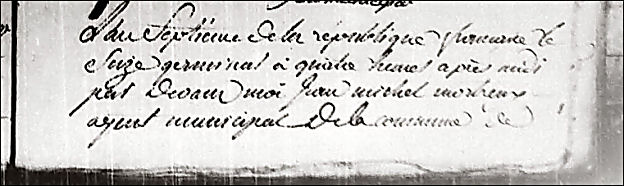 L'an Septieme de la république francaise le
Seize germinal à quatre heures après midi
par devant moi Jean michel
agent municipal de la commune de